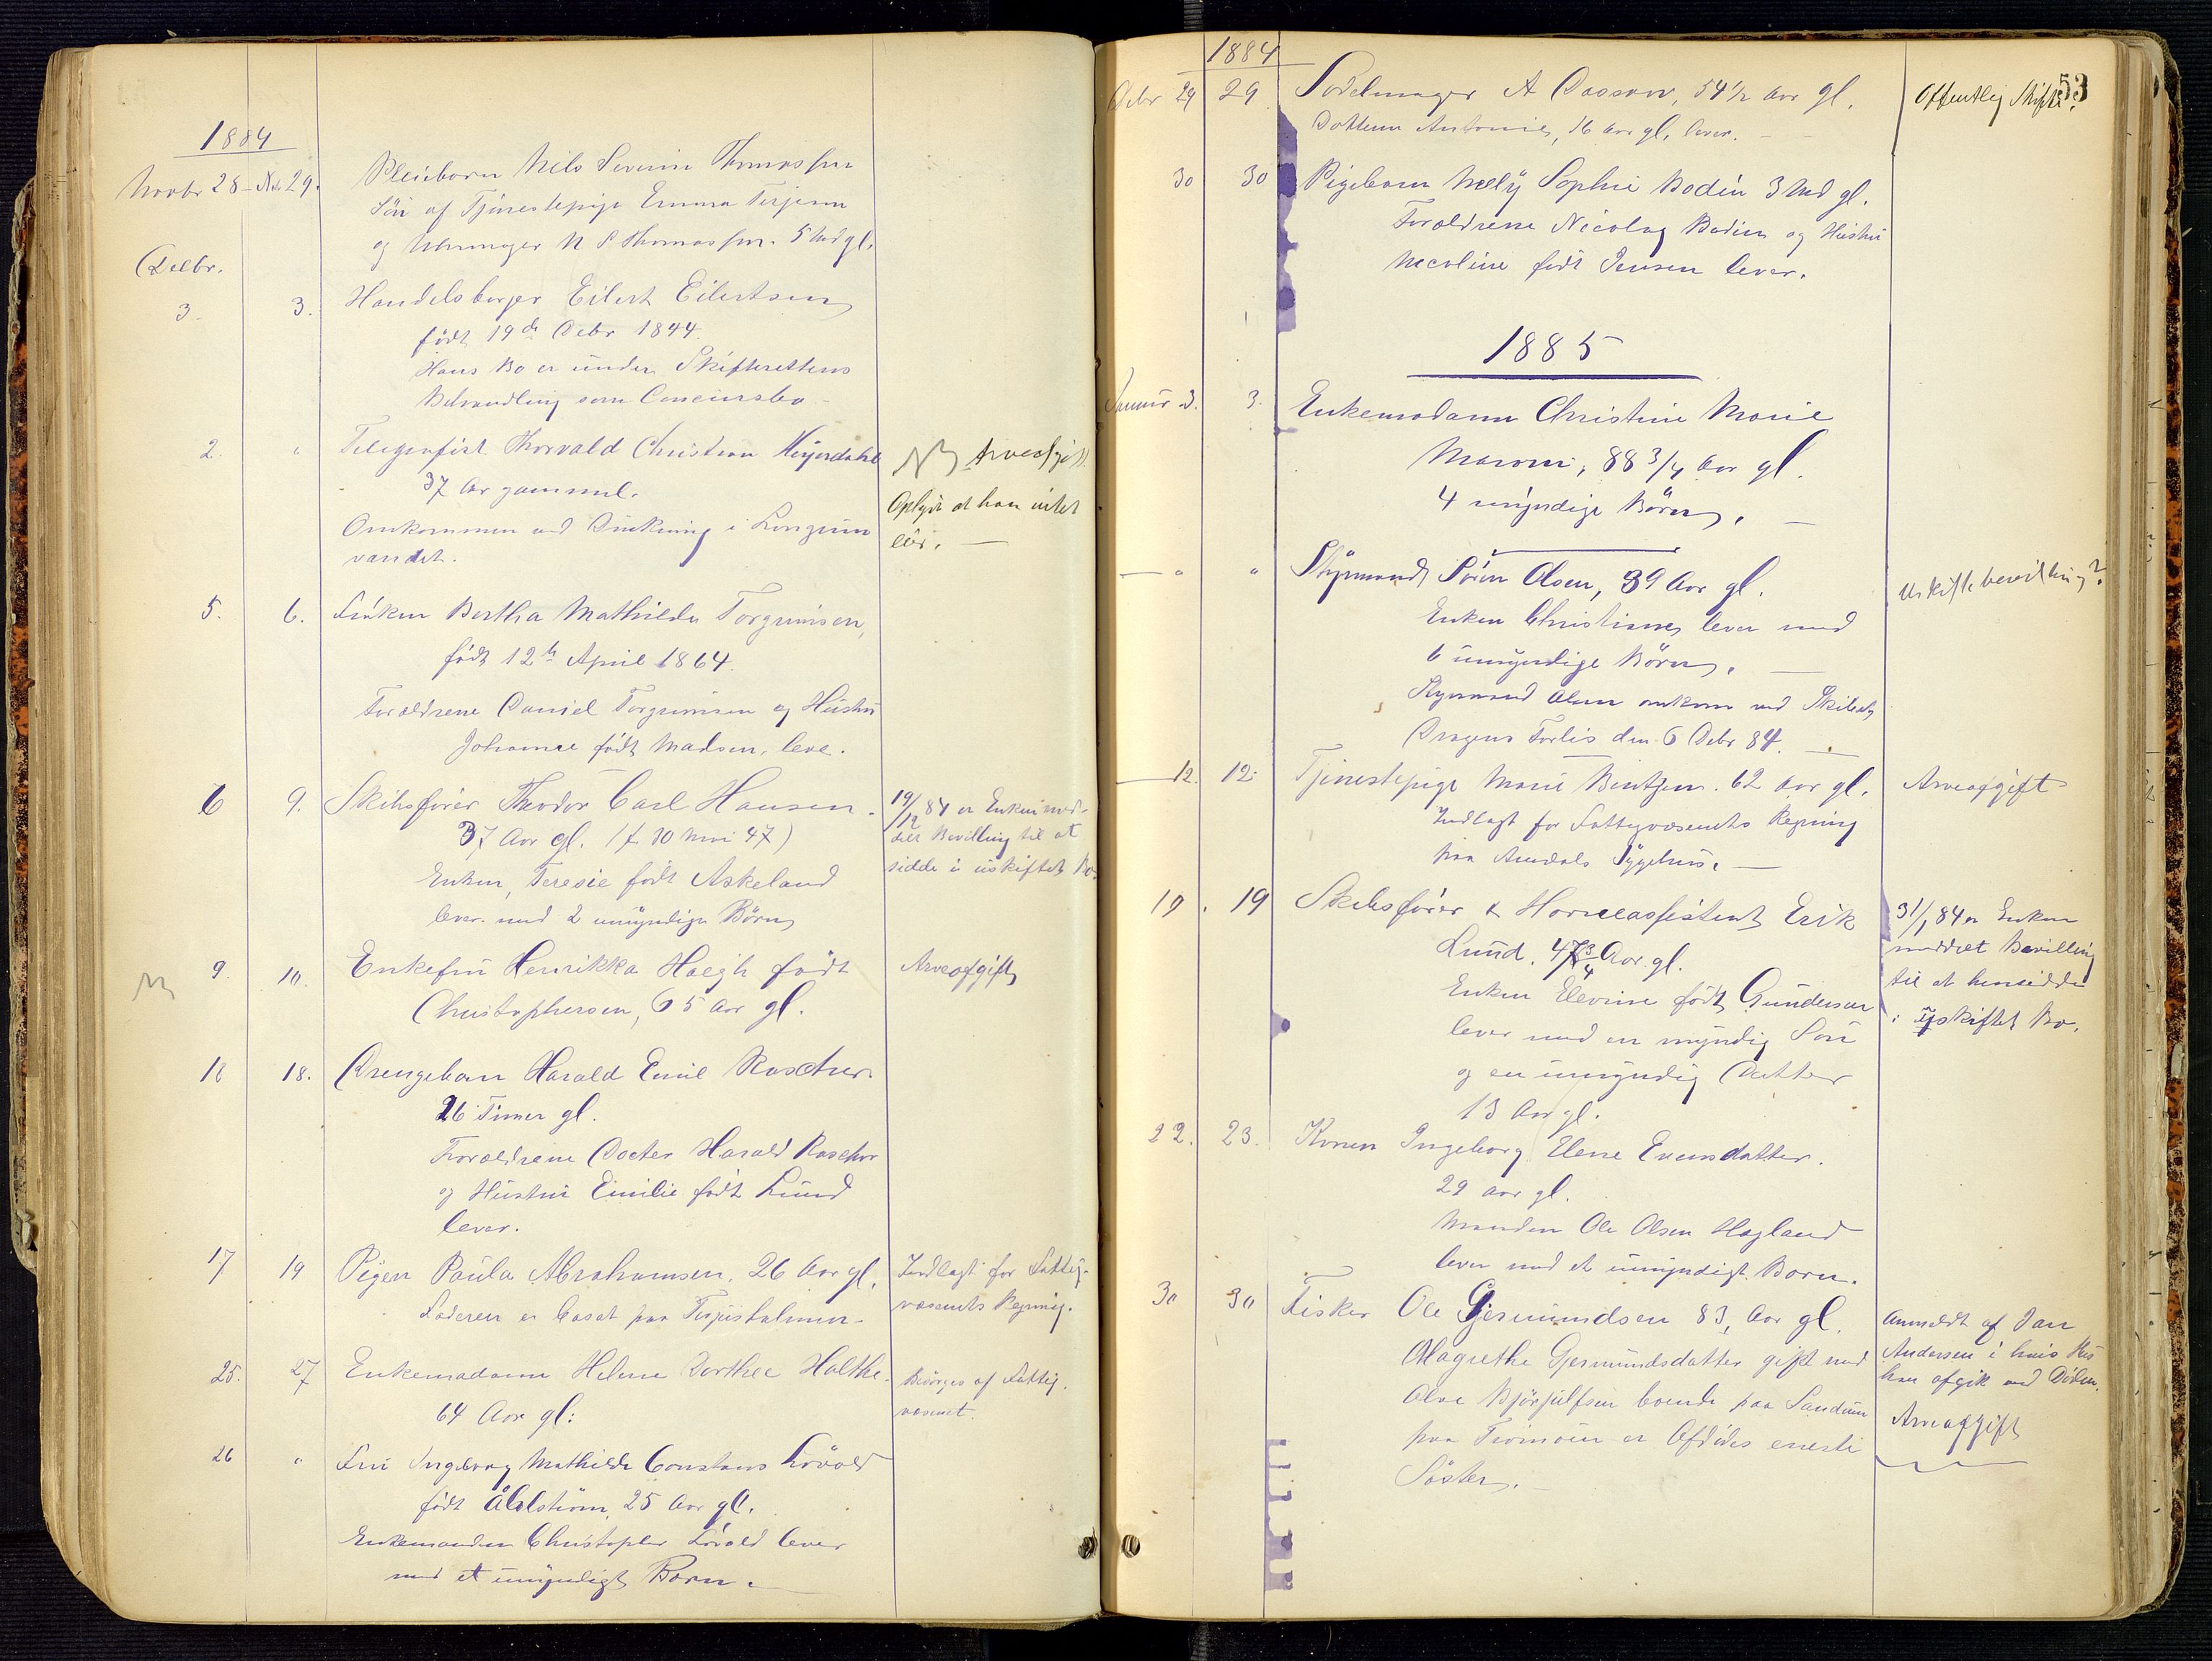 1884
Novbr 28 - Nov 29. Pleiebarn Nils Severin Thomassen
Sön af Tjenestepige Emma Terjesen
og Uhrmager N P Thomassen. 5 Md gl.
Decbr.
3. 3. Handelsborger Eilert Eilertsen
födt 19de Decbr 1844.
Hans Bo er under Skifterettens
Behandling som Concursbo -
2. " Telegrafist Thorvald Christian Heyerdahl
37 Aar gammel.
Omkommen ved Drukning i Longum
vandet.
NB Arveafgift
Oplyst at han intet
eier. —
5. 6. Fröken Bertha Mathilde Torgrimsen,
födt 12te April 1864.
Forældrene Daniel Torgrimsen og Hustru
Johanne födt Madsen, leve.
6 9. Skibsförer Theodor Carl Hansen.
37 Aar gl. (f. 10 Mai 47)
Enken, Teresie födt Askeland
lever med 2 umyndige Börn
19/12 84 er Enken med-
delt Bevilling til at
sidde i uskiftet Bo.
9. 10. Enkefru Henrikka Høegh födt
Christophersen, 65 Aar gl.
Arveafgift
18 18. Drengebarn Harald Emil Roscher.
26 Timer gl.
Forældrene Doctor Harald Roscher
og Hustru Emilie födt Lund
lever.
17 19 Pigen Paula Abrahamsen, 26 Aar gl.
Faderen er bosat paa Terjusholmen.
Indlagt for Fattig-
væsenets Regning.
25. 27 Enkemadame Helene Dorthee Holthe.
64 Aar gl.
Besörges af Fattig-
væsenet.
26 " Fru Ingeborg Mathilde Constans Lövold
födt Åhlström, 25 Aar gl.
Enkemanden Christopher Lövold lever
med et umyndigt Barn.
53
1884
Decbr 29 29 A Dassow, 54 1/2 Aar gl.
Datteren Antonie, 16 Aar gl. lever.
Offentlig Skifte.
30 30 Pigebarn Nelly Sophie Bodin 3 Md gl.
Forældrene Nicolay Bodin og Hustru
Nicoline födt Jensen lever.
1885
Januar 3. 3. Enkemadame Christine Marie
Maroni, 88 3/4 Aar gl.
4 myndige Börn.
— " " Styrmand Sören Olsen, 39 Aar gl.
Enken Christiane lever med
6 umyndige Börn.
Styrmand Olsen omkom ved Skibet
Dragens Forlis den 6 Decbr 84.
Uskiftebevilling?
— 12. 12. Tjenestepige Marie Bentzen. 62 Aar gl.
Indlagt for Fattigvæsenets Regning
paa Arendals Sygehus.
Arveafgift
19. 19 Skibsförer & Havneassistent Erik
Lund. 47 3/4 Aar gl.
Enken Elevine födt Gundersen
lever med en myndig Sön
og en umyndig Datter
13 Aar gl.
31/1 84 er Enken
meddelt Bevilling
til at hensidde
i uskiftet Bo.
22. 23. Konen Ingeborg Elene Evensdatter.
29 aar gl.
Manden Ole Olsen Hagland
lever med et umyndigt Barn.
30 30 Fisker Ole Gjermundsen 83, Aar gl.
Olagrethe Gjermundsdatter gift med
Olve Björjulfsen boende paa Sandum
paa Tromöen er Afdödes eneste
Söster.
Anmeldt af Jan
Andersen i hvis Hus
han afgik ved Döden.
Arveafgift